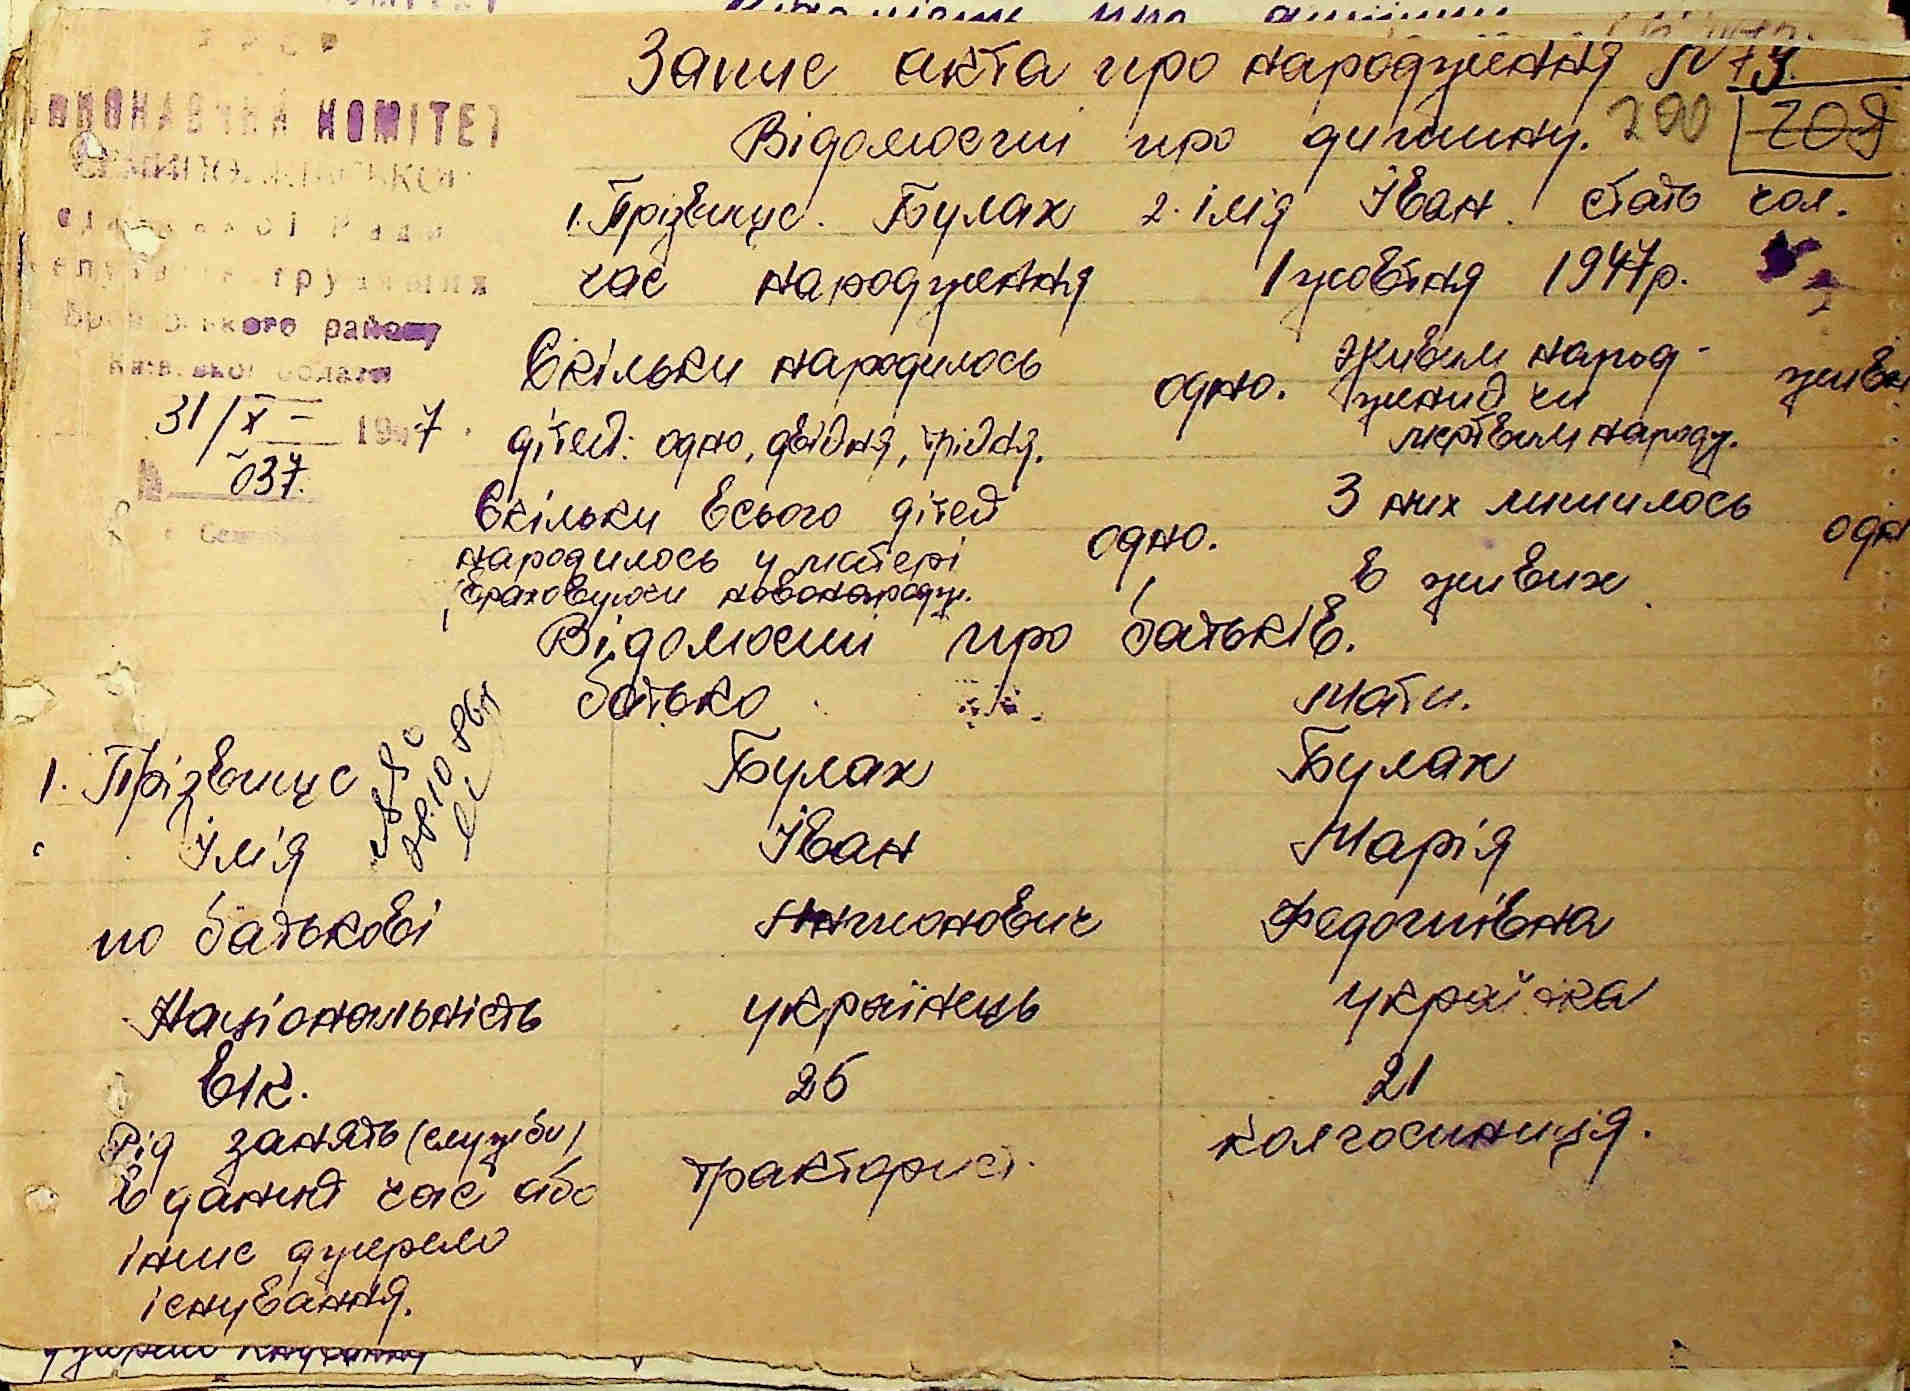 ВИКОНАВЧИЙ КОМІТЕТ
Ради
району
31/X – 1947
№ 037.
Запис акта про народження № 73.
Відомості про дитину. 200 209
1. Прізвище. Булах 2. імя Іван. стать чол.
час народження 1 жовтня 1947р.
Скільки народилось дітей: одно, двійня, трійня. одно. Живим народжений чи мертвим народж. живи
Скільки всього дітей народилось у матері враховуючи новонародж. одно. З них лишилось в живих одн
Відомості про батьків.
батько мати.
1. Прізвище Булах Булах
Ім'я Іван Марія
по батькові Антонович Федотівна
Національність українець українка
Вік. 26 21
Рід занять (служби) в даний час або інше джерело існування. тракторист. колгоспниця.
28.10.86